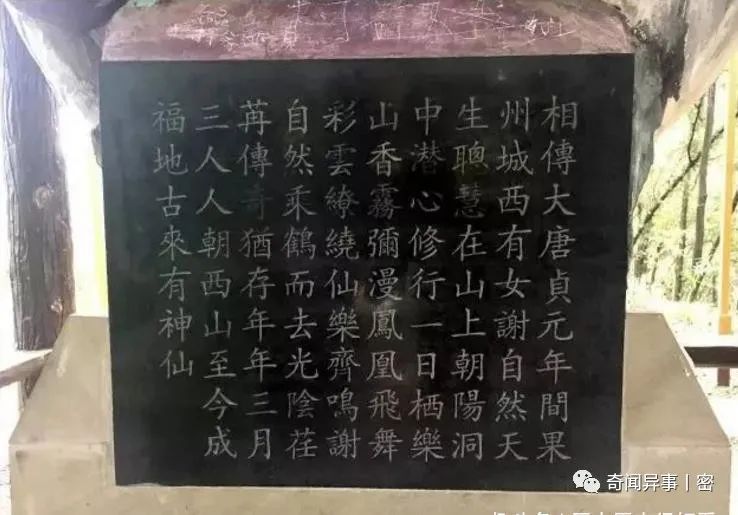 相傳大唐貞元年間果
州城西有女謝自然天
生聰慧在山上朝陽洞
中潜心修行一日栖樂
山香霧彌漫鳳凰飛舞
彩雲繚繞仙樂齊鳴謝
自然乘鶴而去光陰荏
苒傳奇猶存年年三月
三人人朝西山至今成
福地古來有神仙
奇闻异事丨密